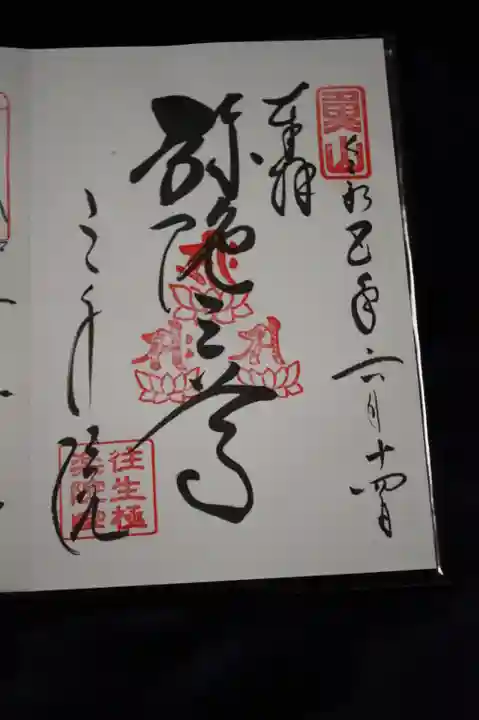 魚山
令和五年六月十四日
奉拝
弥陀三尊
三千院
往生極
楽院